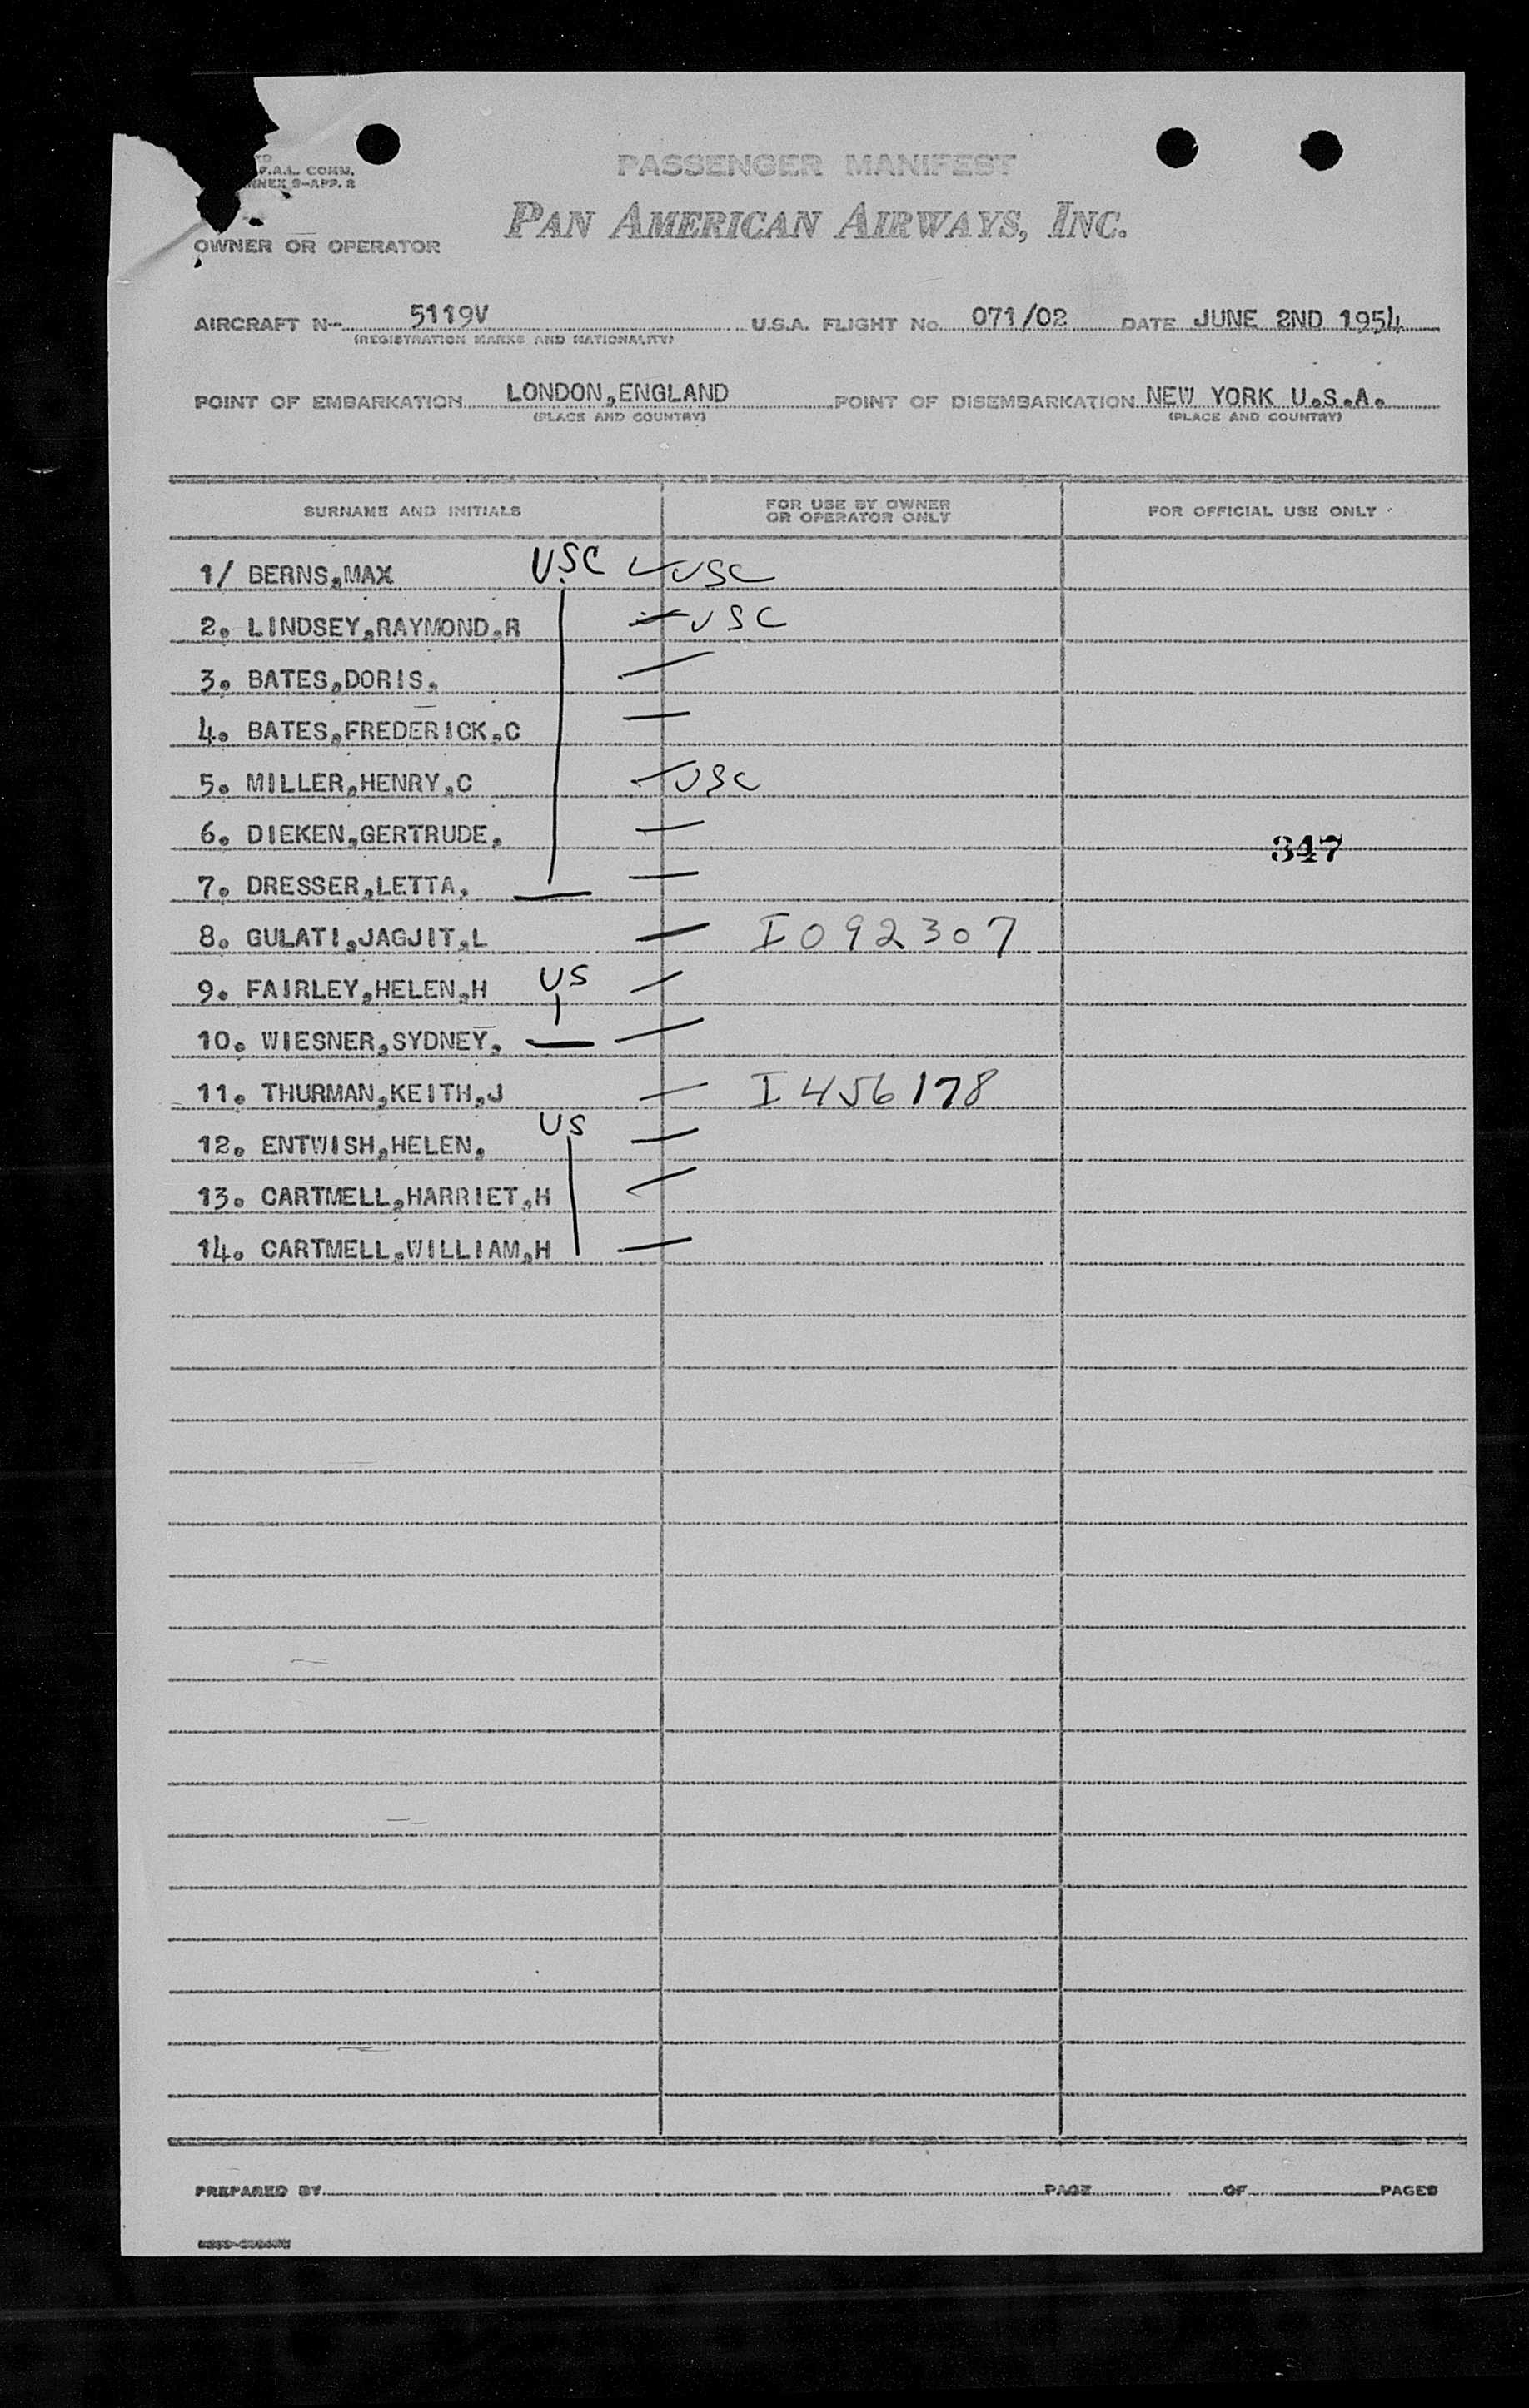 P.A.L. COMM.
PASSENGER MANIFEST
ANNEX 9-APP. 2
PAN AMERICAN AIRWAYS, INC.
OWNER OR OPERATOR
AIRCRAFT N- 5119V U.S.A. FLIGHT No. 071/02 DATE JUNE 2ND 1954
(REGISTRATION MARKS AND NATIONALITY)
POINT OF EMBARKATION LONDON,ENGLAND POINT OF DISEMBARKATION NEW YORK U.S.A.
(PLACE AND COUNTRY) (PLACE AND COUNTRY)
SURNAME AND INITIALS FOR USE BY OWNER OR OPERATOR ONLY FOR OFFICIAL USE ONLY
1/ BERNS,MAX USC USC
2. LINDSEY,RAYMOND,R USC
3. BATES,DORIS.
4. BATES,FREDERICK.C
5. MILLER,HENRY,C USC
6. DIEKEN,GERTRUDE.
347
7. DRESSER,LETTA.
8. GULATI,JAGJIT,L I092307
9. FAIRLEY,HELEN,H US
10. WIESNER,SYDNEY.
11. THURMAN,KEITH,J I456178
12. ENTWISH,HELEN. US
13. CARTMELL,HARRIET,H
14. CARTMELL,WILLIAM,H
PREPARED BY PAGE OF PAGES